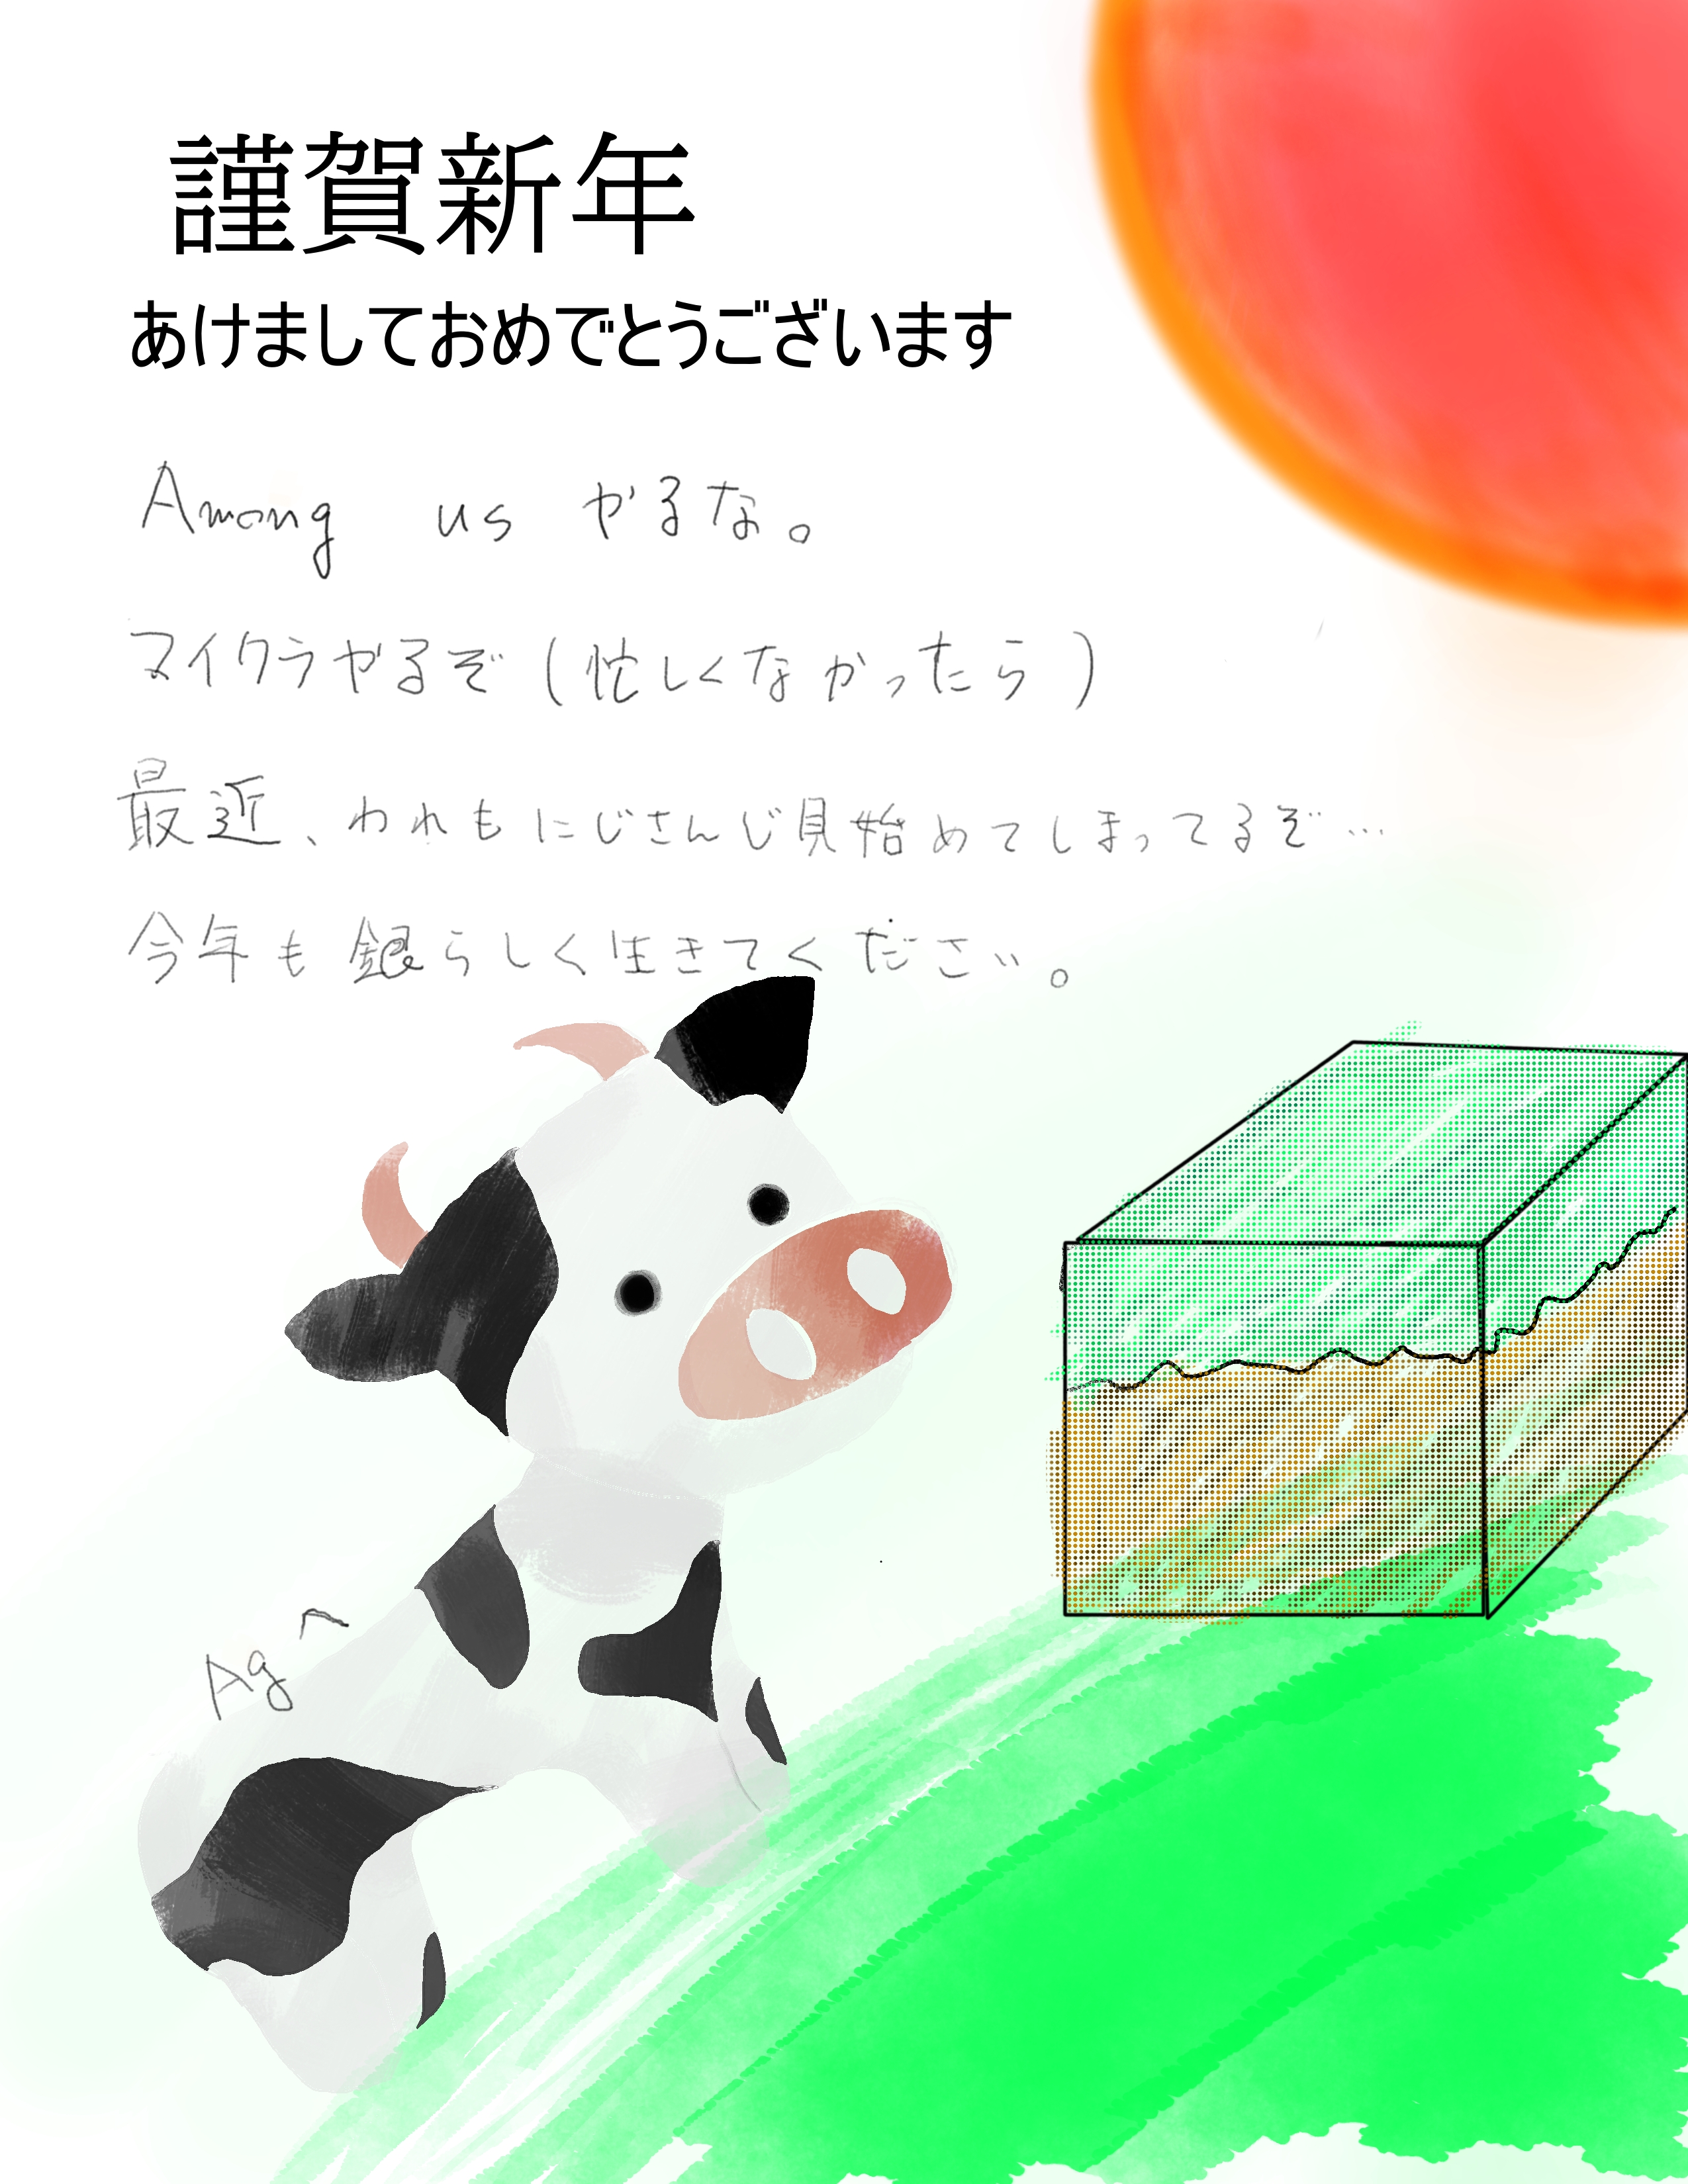 謹賀新年
あけましておめでとうございます
Among us やるな。
マイクラやるぞ(忙しくなかったら)
最近、われもにじさんじ見始めてしまってるぞ…
今年も銀らしく生きてください。
Agへ